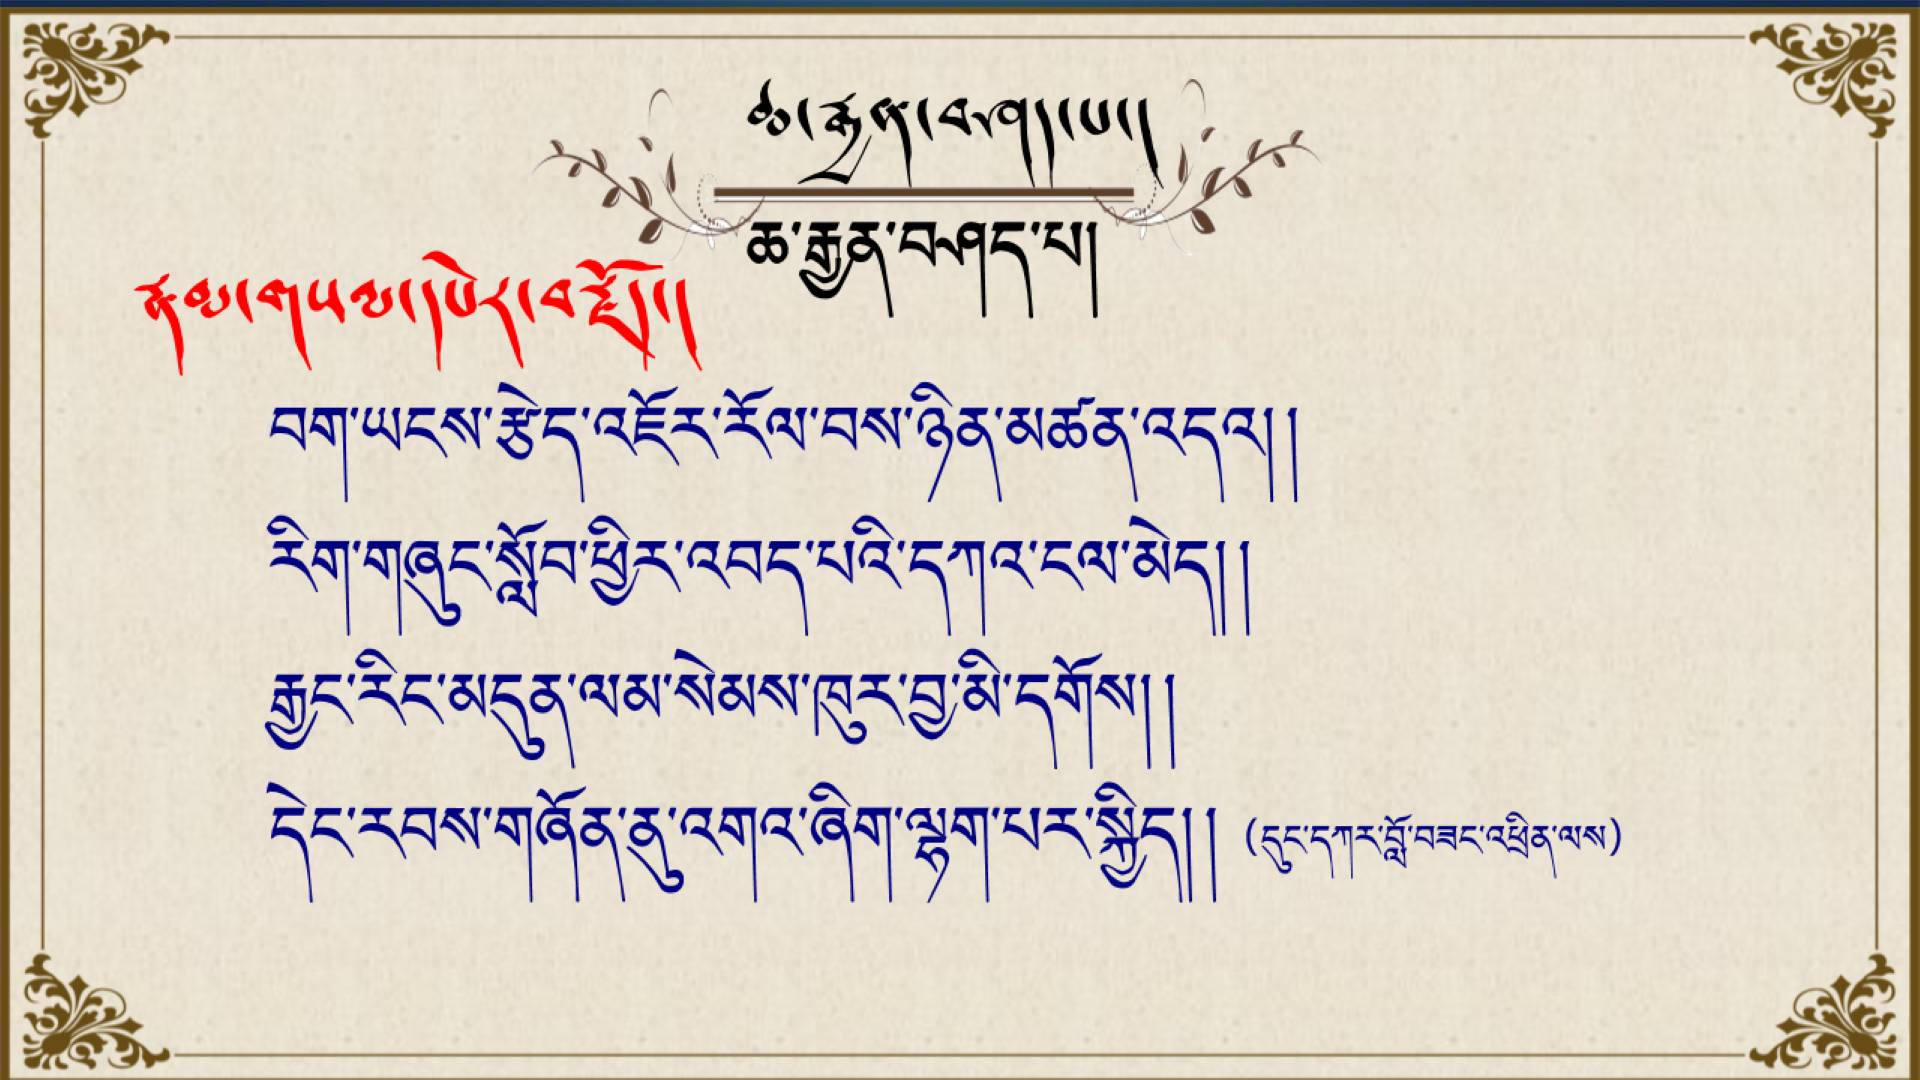 ཆ་རྐྱེན་བཤད་པ།
ཆ་རྒྱན་བཤད་པ།
ཉམས་གཡས་པེར་བརྗོད།
བག་ཡངས་རྩེད་འཇོར་རོལ་བས་ཉིན་མཚན་འདའ། །
རིག་གཞུང་སློབ་ཕྱིར་འབད་པའི་དཀའ་ངལ་མེད། །
རྒྱང་རིང་མདུན་ལམ་སེམས་ཁུར་བྱ་མི་དགོས། །
དེང་རབས་གཞོན་ནུ་འགའ་ཞིག་ལྷག་པར་སྐྱིད། ། (དུང་དཀར་བློ་བཟང་འཕྲིན་ལས)